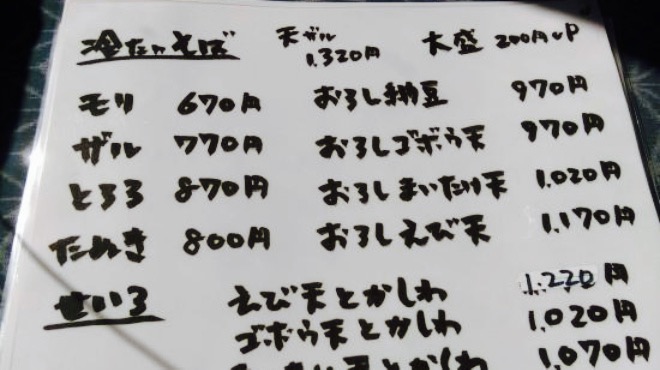 冷たいそば 天ザル 1,320円 大盛 200円UP
モリ 670円 おろし納豆 970円
ザル 770円 おろしゴボウ天 970円
とろろ 870円 おろしまいたけ天 1,020円
たぬき 800円 おろしえび天 1,170円
せいろ えび天とかしわ 1,220円
ゴボウ天とかしわ 1,020円
天とかしわ 1,070円